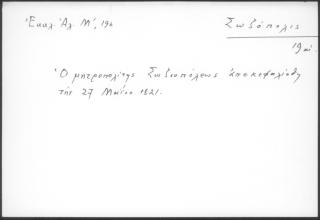 Ἐκκλ. Ἀλ. Μ´, 196
Σωζόπολις
19 αἰ.
Ὁ μητροπολίτης Σωζοπόλεως ἀπεκεφαλίσθη
τῆς 27 Μαΐου 1821.